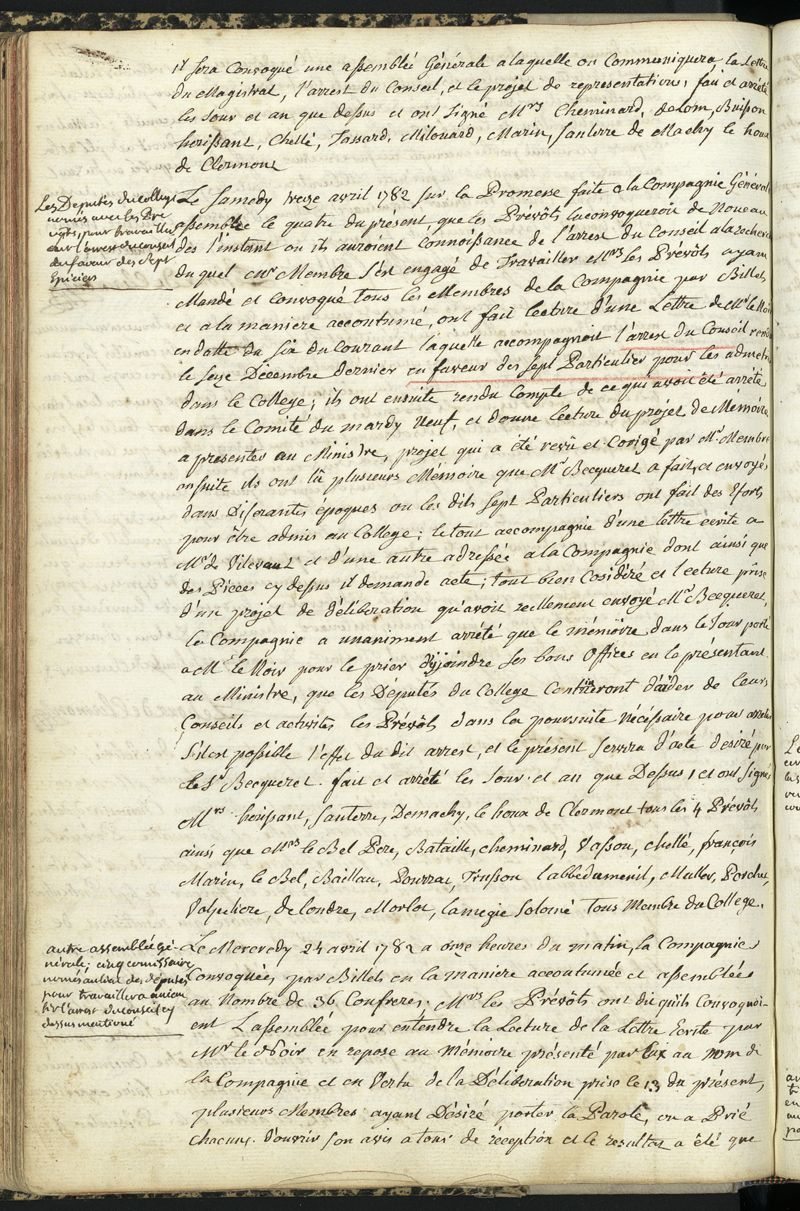 il sera Convoqué une assemblée Générale a laquelle on Communiquera la Lettre
du Magistrat, l'arrest du Conseil, et le projet de representations; fait et arrété
les Jour et an que dessus et ont Signé Mrs Cheminard, delom, Buisson
herissant, Chellé, Tassard, Milouard, Marin, Santerre de Machy le houx
de Clermont
Les Deputés du college
només avec les Pre
vots, pour travailler
sur l'arrest du conseil
en faveur des Sept
Epiciers
Le Samedy treize avril 1782 sur la Promesse faite a la Compagnie Général
assemblée le quatre du présent, que les Prévôts la convoqueroit de Nouveau
des l'instant ou ils auroient Connoissance de l'arrest du Conseil a la recherche
duquel un Membre s'est engagé de Travailler Mrs les Prévôts ayant
Mandé et Convoqué tous les Membres de la Compagnie par Billets
et a la maniere accoutumé, ont fait lecture d'une Lettre de Mr le Noir
en datte du Six du Courant laquelle accompagnoit l'arrest du Conseil rendu
le Seize Décembre dernier en faveur des Sept Particulier pour les admetre
dans le College; ils ont ensuite rendu Compte de ce qui avoit été arrété
dans le Comité du mardy Neuf, et donné lecture du projet de Mémoire
a presenter au Ministre, projet qui a été revû et Corigé par Mr Membre
ensuite ils ont lû plusieurs Mémoire que Mr Becqueret a fait, et envoyés
dans Diferantes epoques ou les dits Sept Particuliers ont fait des Eforts
pour être admis au College; le tout accompagnie d'une lettre ecrite a
Mr de Vilevaut et d'une autre adressée a la Compagnie dont ainsi que
des Pieces cy dessus il demande acte; tout bien Cosidéré et lecture prise
d'un projet de déliberation qu'avoit reellement envoyé Mr Becqueret,
la Compagnie a unaniment arrété que le mémoire dans le Jour porté
a Mr le Noir pour le prier d'y joindre Ses bons Offices en le présentant
au Ministre, que les Députés du College Contineront d'aider de leurs
Conseils et activités les Prévôts dans la poursuite Nécéssaire pour arreter
S'il est possible l'effet du dit arrest, et le présent Servira d'acte desiré par
le Sr Becqueret. fait et arrété les Jour et an que Dessus, et ont Signés
Mrs herissant, Santerre, Demachy, le houx de Clermont tous les 4 Prévôts
ainsi que Mrs le Bel Pere, Bataille, Cheminard, Vasson, Chellé, françois
Marin, le Bel, Baillau, Pourrat, Trusson labbé dumenil, Muller, Porcher,
Valpelière, delondre, Morlot, lamegie Solomé tous Membre du College.
autre assemblée gé-
nérale; cinq comissaire
només au lieu des députés
pour travailler a mieux
sur l'arrest du conseil cy
dessus mentioné
Le Mercredy 24 avril 1782 a onze heures du matin, la Compagnie
Convoquées par Billets en la maniere accoutumée et assemblée
au Nombre de 36 Confreres. Mrs les Prévôts ont dit qu'ils Convoquoi-
ent l'assemblée pour entendre la Lecture de la Lettre Ecrite par
Mr le Noir en reponse au Mémoire présenté par Eux au nom de
la Compagnie et en Vertu de la Déliberation prise le 13 du présent,
plusieurs Membres ayant Désiré porter la Parole, on a Prié
Chacuns d'ouvrir son avis a tour de réception et le resultat a été que